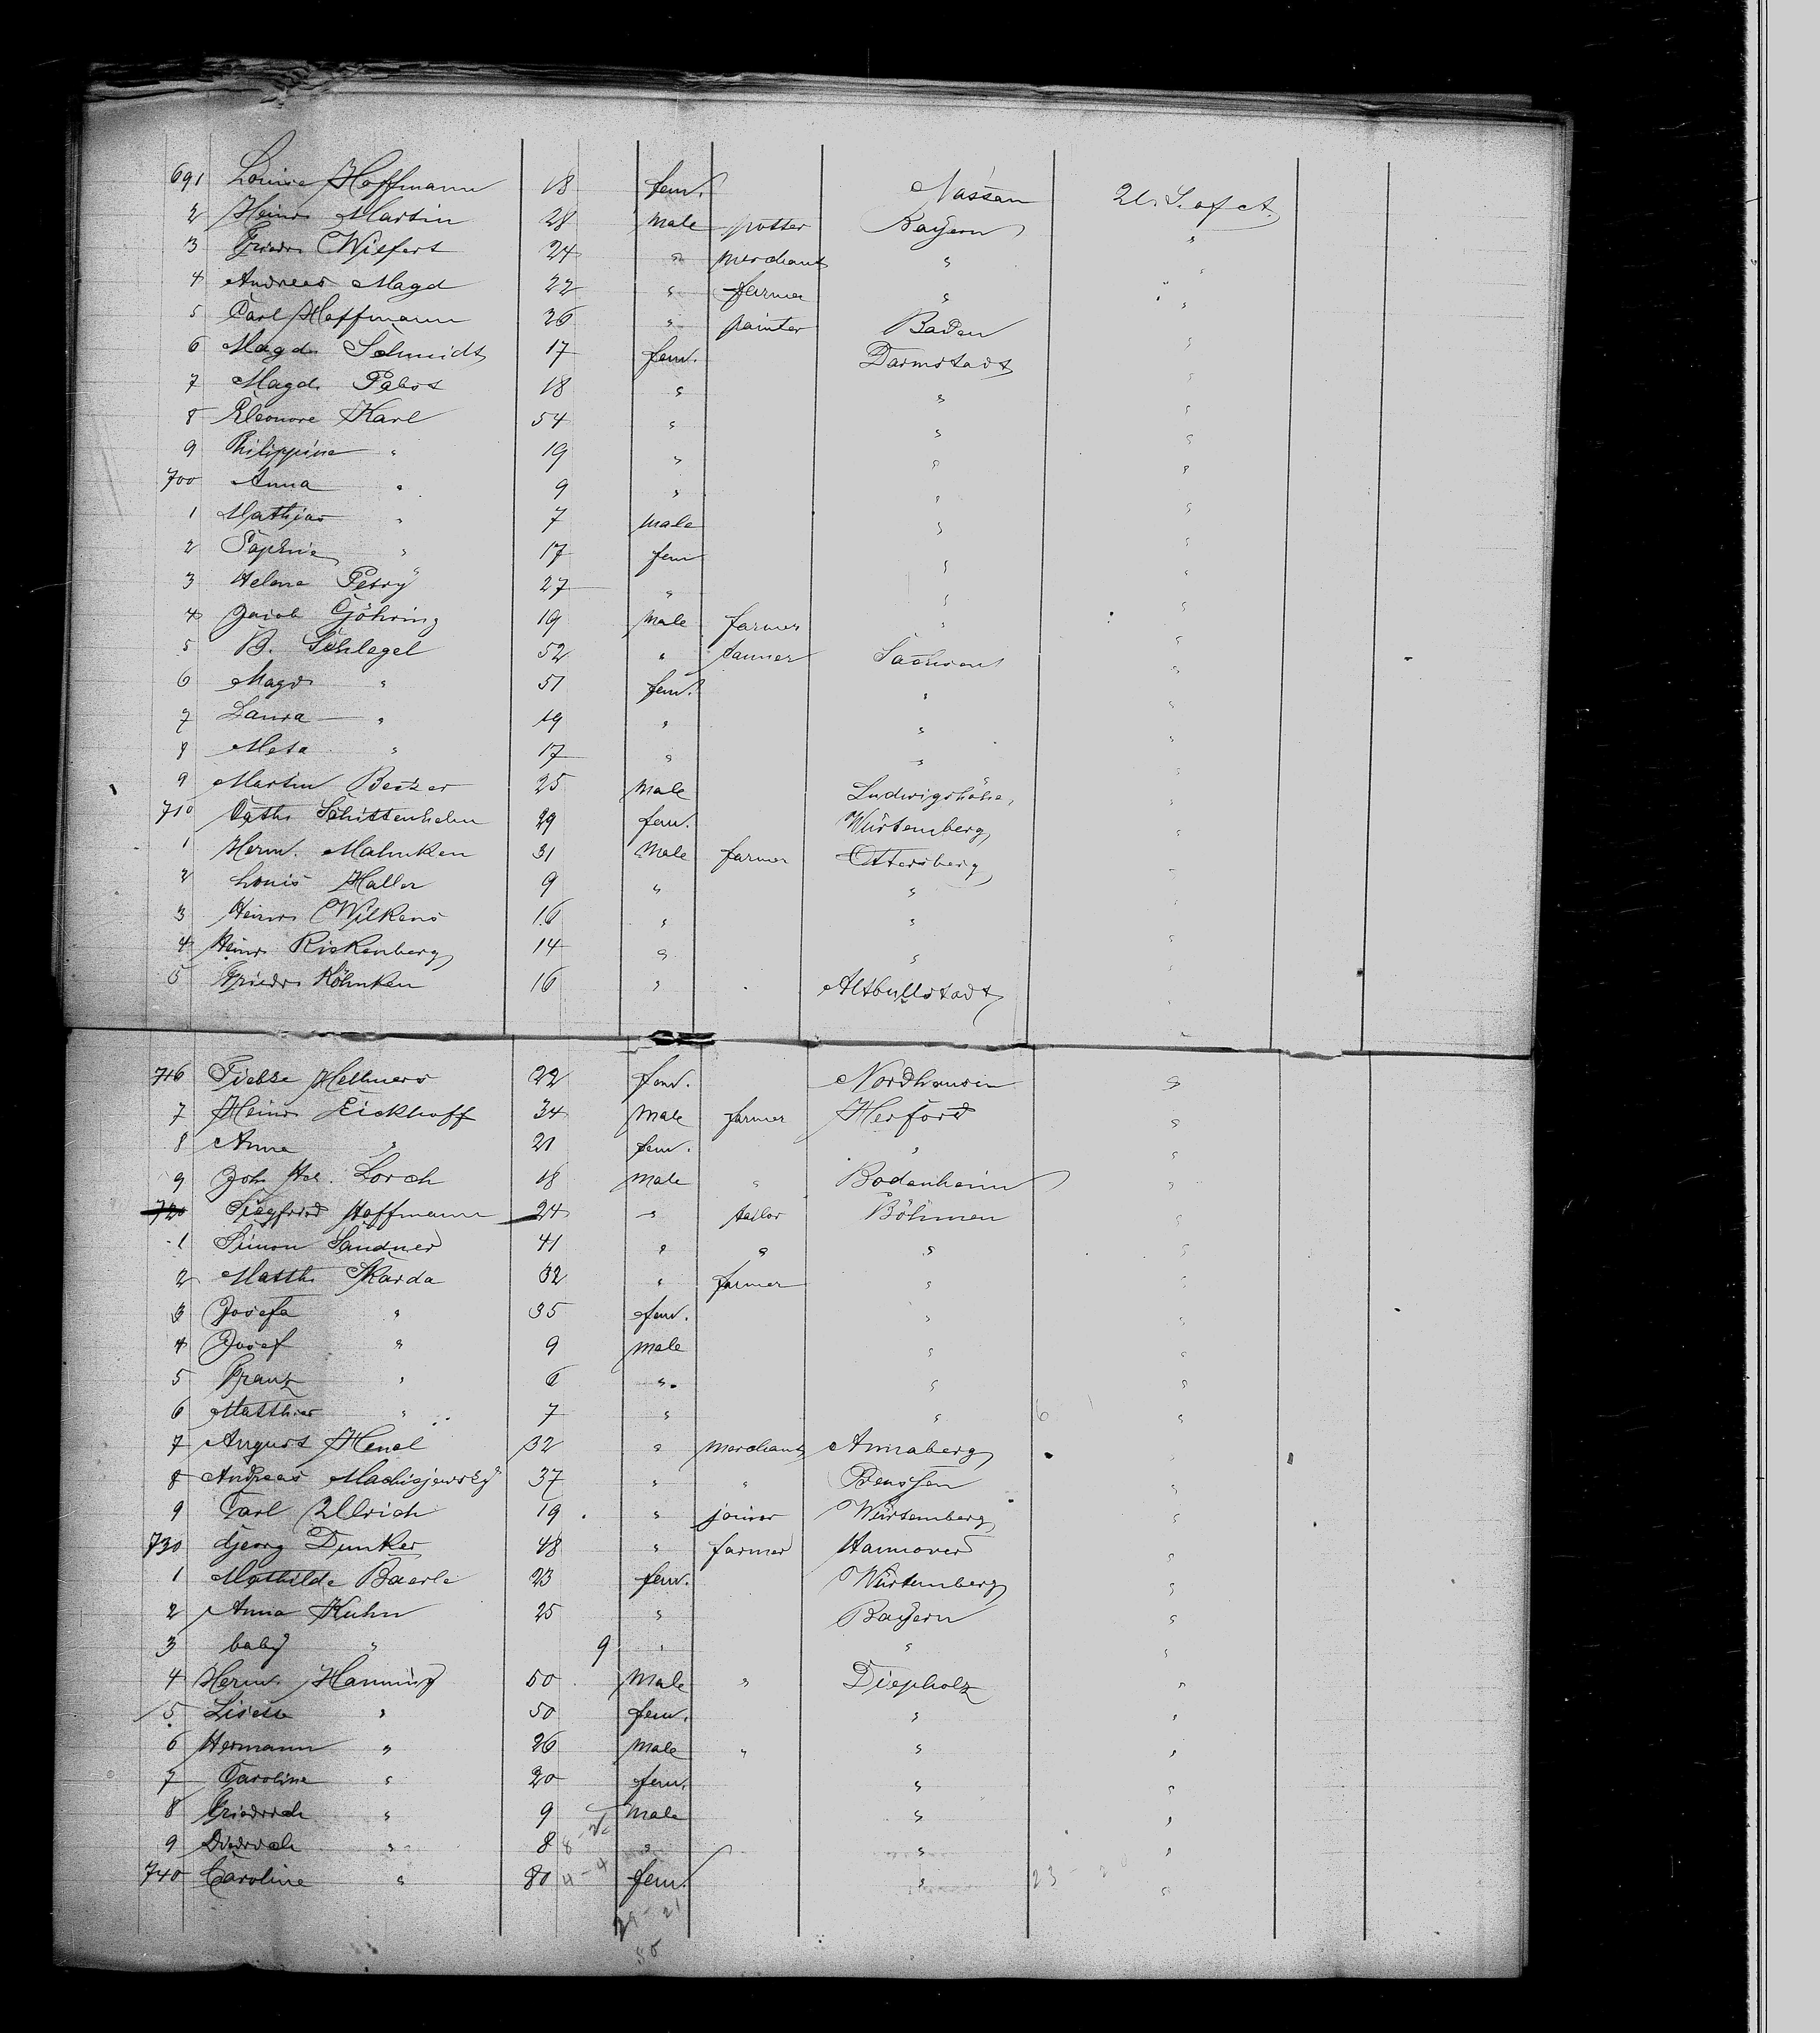 691 Louise Hoffmann 18 fem. Nassau U. S. of A.
2 Heinr. Martin 28 male potter Bayern "
3 Friedr. Wiefert 24 " merchant " "
4 Andreas Magd 22 " farmer " "
5 Carl Hoffmann 26 " painter Baden "
6 Magd. Schmidt 17 fem. Darmstadt "
7 Magd. Pabst 18 " " "
8 Eleonore Karl 54 " " "
9 Philippine " 19 " " "
700 Anna " 9 " " "
1 Mathias " 7 male " "
2 Sophie " 17 fem " "
3 Helene Petry 27 " " "
4 Jacob Göhring 19 male farmer " "
5 B. Schlegel 52 " tanner Sachsen "
6 Magd. " 51 fem. " "
7 Laura " 19 " " "
8 Meta " 17 " " "
9 Martin Becker 25 male Ludwigshöhe "
710 Cath. Schittenhelm 29 fem. Würtemberg "
1 Herm. Mahnken 31 male farmer Ottersberg "
2 Louis Haller 9 " " "
3 Heinr. Wilkens 16 " " "
4 Heinr. Rickenberg 14 " " "
5 Friedr. Köhnken 16 " "
716 Hellmers 22 fem. Nordhausen "
7 Heinr. Eickhoff 34 male farmer Herford "
8 Anna " 21 fem. " "
9 Joh. Lorch 18 male " Bodenheim "
720 Siegfried Hoffmann 24 " tailor Böhmen "
1 Simon Sandner 41 " " " "
2 Matth. Skarda 32 " farmer " "
3 Josefa " 35 fem. " "
4 Josef " 9 male " "
5 Franz " 6 " " "
6 Matthias " 7 " " "
7 August Henel 32 " merchant Annaberg "
8 Andreas Machisjewsky 37 " " Preussen "
9 Carl Ullrich 19 " joiner Würtemberg "
730 Georg Dunker 48 " farmer Hannover "
1 Mathilde Baerle 23 fem. Würtemberg "
2 Anna Kuhn 25 " Bayern "
3 baby " 9 " " "
4 Herm. Hanning 50 male " Diepholz "
5 Lisette " 50 fem. " "
6 Hermann " 26 male " " "
7 Caroline " 20 fem. " "
8 Friedrich " 9 male " "
9 Diedrich " 8 " " "
740 Caroline " 80 fem. " "